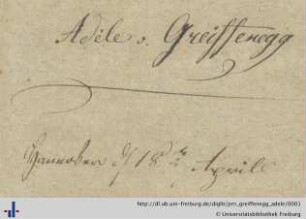 Adèle v. Greiffenegg
Hannover d/ 18ᵗᵉ Aprill
http://dl.ub.uni-freiburg.de/diglit/prn_greiffenegg_adele/0001
© Universitätsbibliothek Freiburg